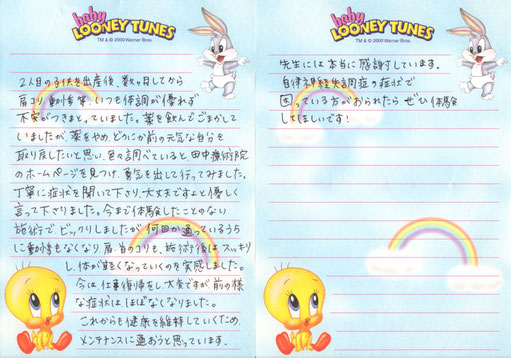 baby
LOONEY TUNES
TM & © 2000 Warner Bros.
2人目の子供を出産後、数ヶ月してから
肩コリ、動悸等、いつも体調が優れず
不安がつきまとっていました。薬を飲んでごまかして
いましたが、薬をやめ、どうにか前の元気な自分を
取り戻したいと思い、色々調べていると、田中療術院
のホームページを見つけ、勇気を出して行ってみました。
丁寧に症状を聞いて下さり、大丈夫ですよと優しく
言って下さりました。今まで体験したことのない
施術で、ビックリしましたが、何回か通っているうち
に動悸もなくなり、肩、首のコリも、施術後はスッキリ
し、体が軽くなっていくのを実感しました。
今は仕事復帰をし、大変ですが前の様
な症状はほぼなくなりました。
これからも健康を維持していくため、
メンテナンスに通おうと思っています。
baby
LOONEY TUNES
TM & © 2000 Warner Bros.
先生には本当に感謝しています。
自律神経失調症の症状で
困っている方がおられたら、ぜひ体験
してほしいです!